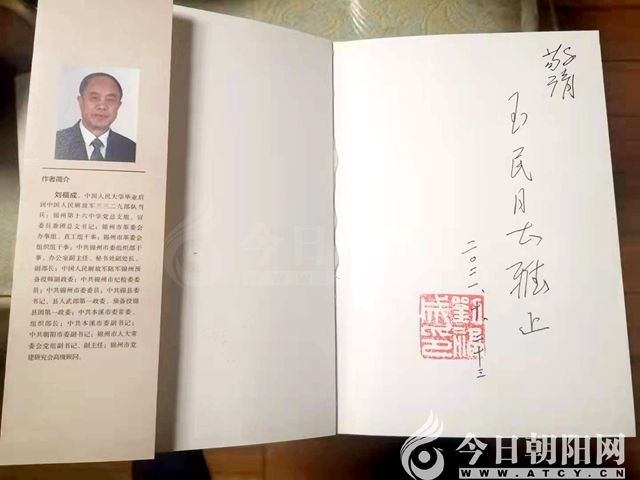 作者简介
刘福成，中国人民大学毕业后
到中国人民解放军三三二九部队当
兵；锦州第十六中学党总支组、宣
委员兼团总支书记；锦州市革委会
办组、直工组干事；锦州市革委会
组织组干事；中共锦州市委组织部干
事、办公室副主任、秘书处副处长、
副部长；中国人民解放军陆军锦州预
备役师副政委；中共锦州市纪检委委
员；中共锦州市委委员；中共锦县委
书记、县人武部第一政委、预备役锦
县团第一政委；中共本溪市委常委、
组织部长；中共本溪市委副书记；
中共朝阳市委副书记；锦州市人大常
委会党组副书记、副主任；锦州市党
建研究会高级顾问。
敬请
玉民同志雅正
今日朝阳网
今日朝阳网
WWW.ATCY.CN